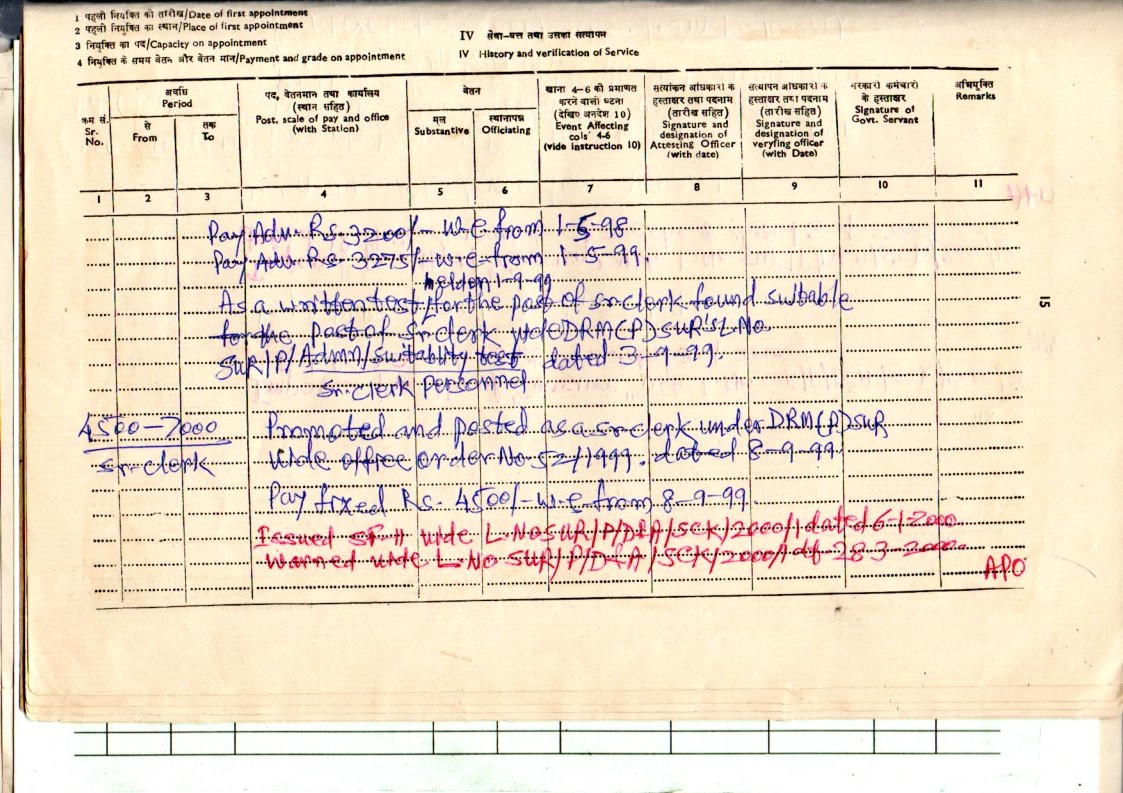 1 पहली नियुक्ति की तारीख/Date of first appointment
2 पहली नियुक्ति का स्थान/Place of first appointment
3 नियुक्ति का पद/Capacity on appointment
4 नियुक्ति के समय वेतन और वेतन मान/Payment and grade on appointment
IV सेवा-वृत्त तथा उसका सत्यापन
IV History and verification of Service
क्रम सं.
Sr. No.
अवधि
Period
से
From
तक
To
पद, वेतनमान तथा कार्यालय
(स्थान सहित)
Post. scale of pay and office
(with Station)
वेतन
मूल
Substantive
स्थानापन्न
Officiating
खाना 4-6 की प्रमाणत
करने वाली घटना
(देखिए अनदेश 10)
Event Affecting
cols' 4-6
(vide instruction 10)
सत्यांकन अधिकारी के
हस्ताक्षर तथा पदनाम
(तारीख सहित)
Signature and
designation of
Attesting Officer
(with date)
सत्यापन अधिकारी के
हस्ताक्षर तथा पदनाम
(तारीख सहित)
Signature and
designation of
veryfing officer
(with Date)
सरकारी कर्मचारी
के हस्ताक्षर
Signature of
Govt. Servant
अभियुक्ति
Remarks
1 2 3 4 5 6 7 8 9 10 11
Pay Adv. Rs. 3200/- w.e from 1-5-98
Pay Adv. Rs. 3275/- w.e from 1-5-99.
held on 1-9-99
As a written test for the post of sr.clerk found suitable
for the post of sr.clerk vide DRM(P) SUR's L.No.
SUR/P/Admn/suitablity test dated 3-9-99.
sr.clerk personnel
4500-7000
sr-clerk
Promoted and posted as a sr-clerk under DRM(P) SUR
vide office order No 52/1999. dated 8-9-99.
Pay fixed Rs. 4500/- w.e from 8-9-99.
Issued SF-11 vide L.No SUR/P/D&A/SCK/2000/1 dated 6-1-2000
Warned vide L.No SUR/P/D&A/SCK/2000/1 dt 28-3-2000.
APO
15